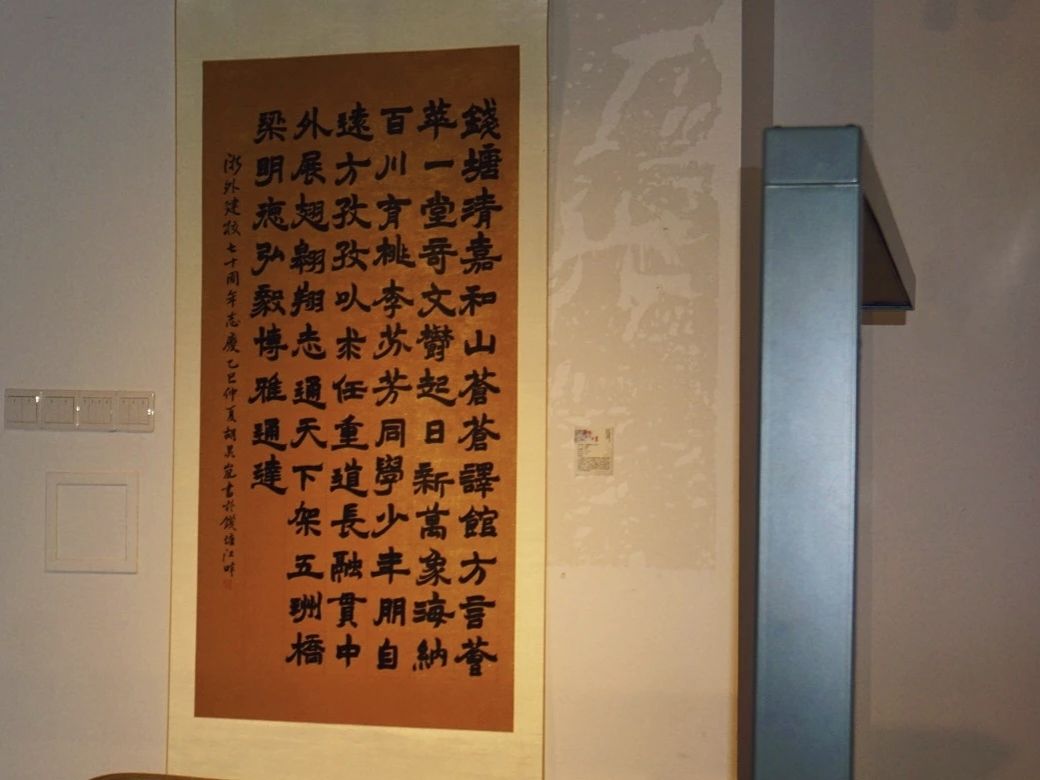 錢塘清嘉和山蒼蒼譯館方言薈
萃一堂奇文欝起日新萬象海納
百川育桃李芬芳同學少年朋自
遠方孜孜以求任重道長融貫中
外展翅翱翔志通天下架五洲橋
梁明德弘毅博雅通達
浙外建校七十周年志慶乙巳仲夏胡嵐書於錢塘江畔